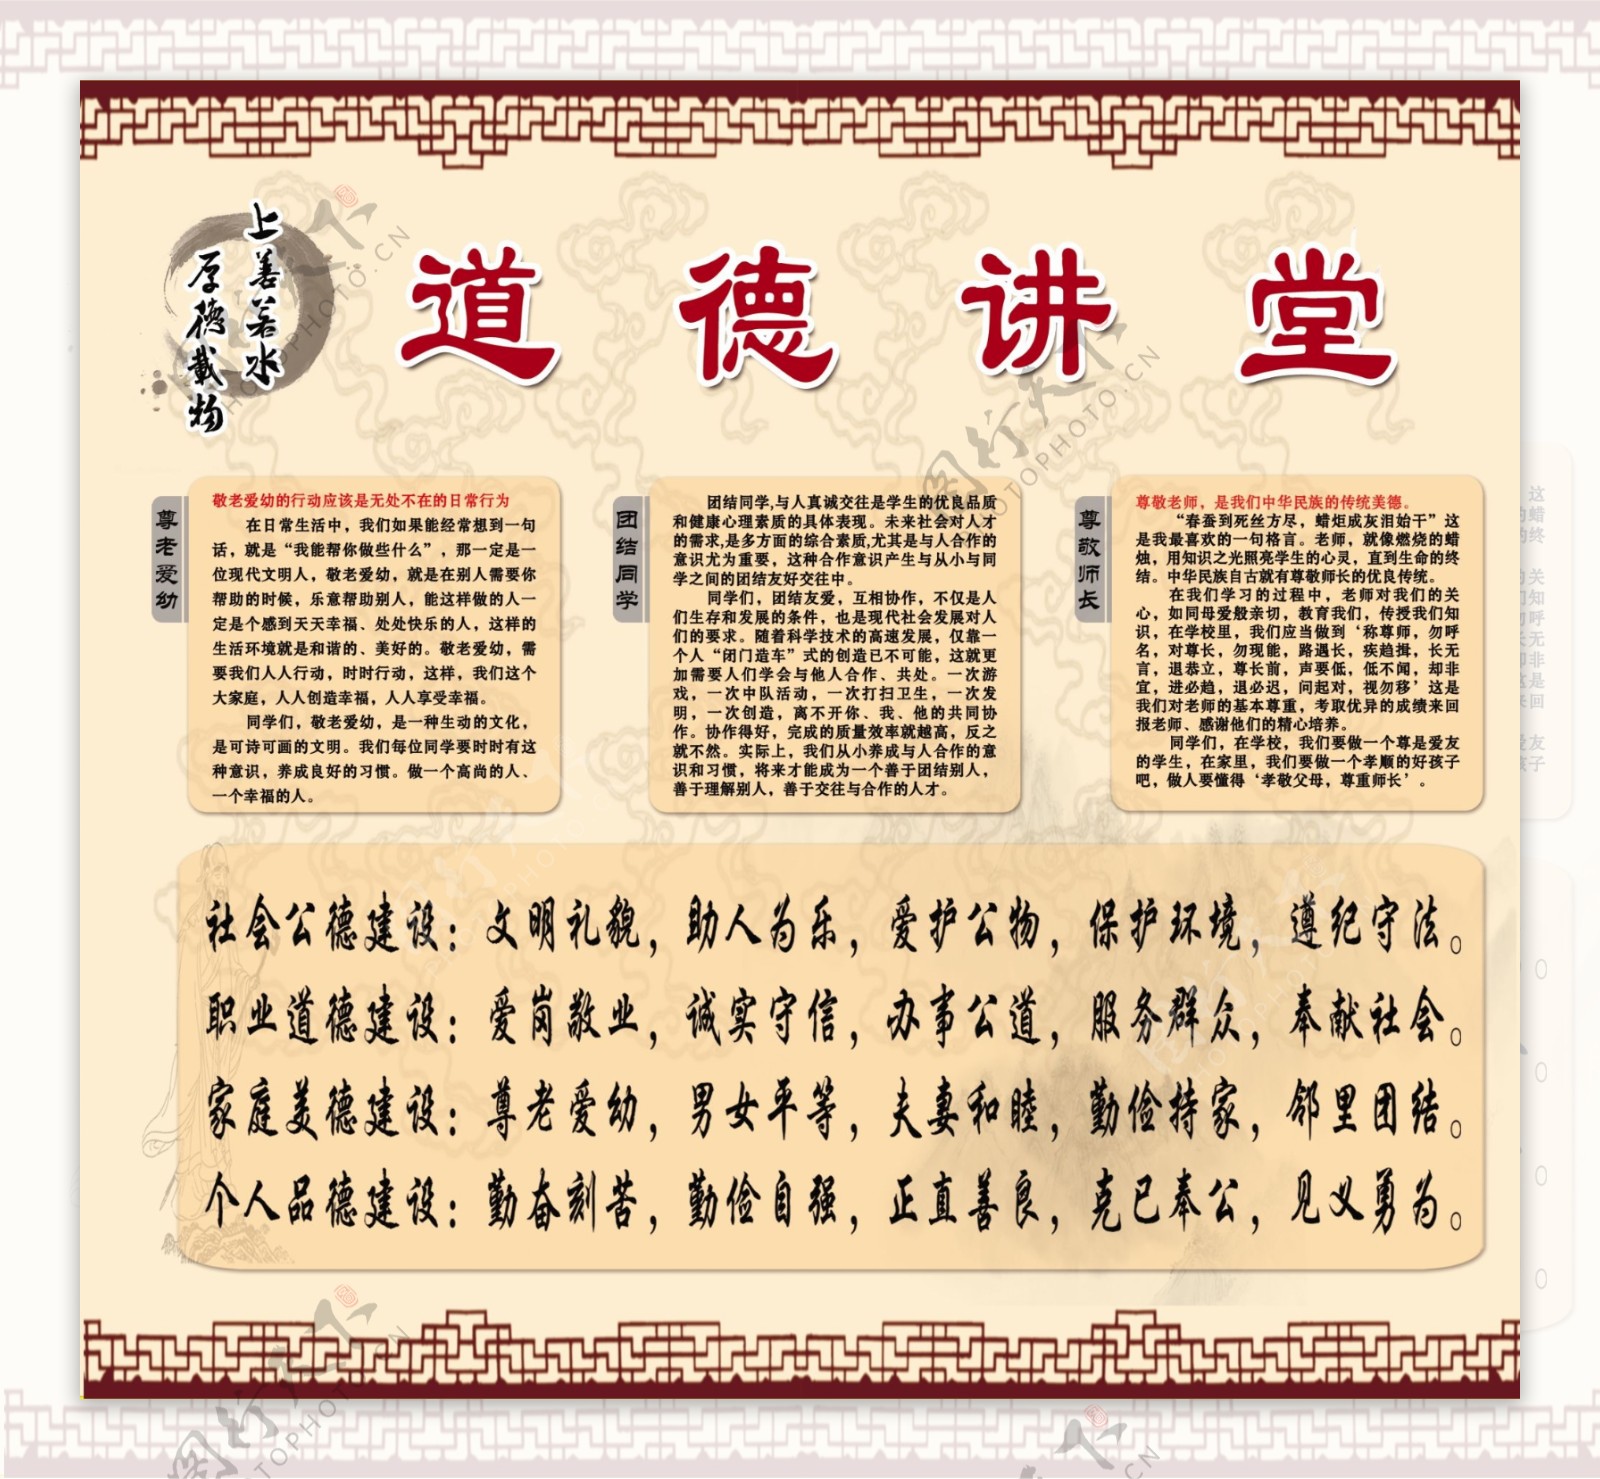 上善若水
厚德载物
道德讲堂
尊老爱幼
敬老爱幼的行动应该是无处不在的日常行为
在日常生活中，我们如果能经常想到一句
话，就是“我能帮你做些什么”，那一定是一
位现代文明人，敬老爱幼，就是在别人需要你
帮助的时候，乐意帮助别人，能这样做的人一
定是个感到天天幸福、处处快乐的人，这样的
生活环境就是和谐的、美好的。敬老爱幼，需
要我们人人行动，时时行动，这样，我们这个
大家庭，人人创造幸福，人人享受幸福。
同学们，敬老爱幼，是一种生动的文化，
是可诗可画的文明。我们每位同学要时时有这
种意识，养成良好的习惯。做一个高尚的人、
一个幸福的人。
团结同学
团结同学,与人真诚交往是学生的优良品质
和健康心理素质的具体表现。未来社会对人才
的需求,是多方面的综合素质,尤其是与人合作的
意识尤为重要，这种合作意识产生与从小与同
学之间的团结友好交往中。
同学们，团结友爱，互相协作，不仅是人
们生存和发展的条件，也是现代社会发展对人
们的要求。随着科学技术的高速发展，仅靠一
个人“闭门造车”式的创造已不可能，这就更
加需要人们学会与他人合作、共处。一次游
戏，一次中队活动，一次打扫卫生，一次发
明，一次创造，离不开你、我、他的共同协
作。协作得好，完成的质量效率就越高，反之
就不然。实际上，我们从小养成与人合作的意
识和习惯，将来才能成为一个善于团结别人，
善于理解别人，善于交往与合作的人才。
尊敬师长
尊敬老师，是我们中华民族的传统美德。
“春蚕到死丝方尽，蜡炬成灰泪始干”这
是我最喜欢的一句格言。老师，就像燃烧的蜡
烛，用知识之光照亮学生的心灵，直到生命的终
结。中华民族自古就有尊敬师长的优良传统。
在我们学习的过程中，老师对我们的关
心，如同母爱般亲切，教育我们，传授我们知
识，在学校里，我们应当做到‘称尊师，勿呼
名，对尊长，勿现能，路遇长，疾趋揖，长无
言，退恭立，尊长前，声要低，低不闻，却非
宜，进必趋，退必迟，问起对，视勿移’这是
我们对老师的基本尊重，考取优异的成绩来回
报老师、感谢他们的精心培养。
同学们，在学校，我们要做一个尊是爱友
的学生，在家里，我们要做一个孝顺的好孩子
吧，做人要懂得‘孝敬父母，尊重师长’。
社会公德建设：文明礼貌，助人为乐，爱护公物，保护环境，遵纪守法。
职业道德建设：爱岗敬业，诚实守信，办事公道，服务群众，奉献社会。
家庭美德建设：尊老爱幼，男女平等，夫妻和睦，勤俭持家，邻里团结。
个人品德建设：勤奋刻苦，勤俭自强，正直善良，克己奉公，见义勇为。